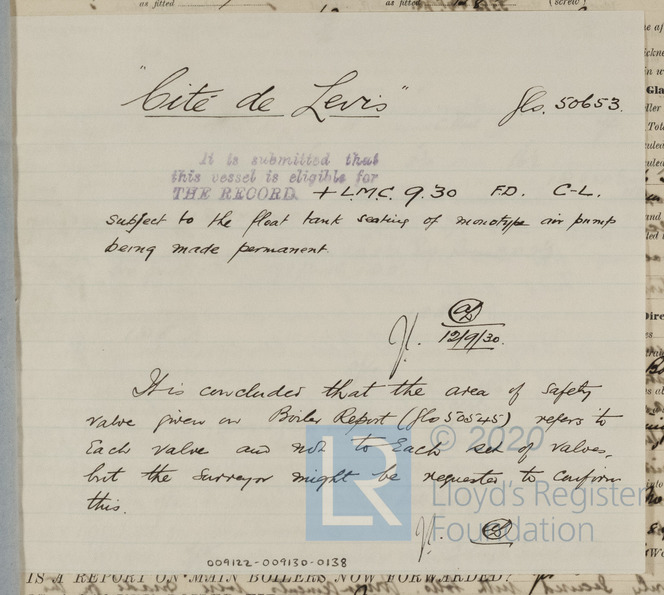 as fitted as fitted (screw)
"Cité de Levis" Gls. 50653.
It is submitted that
this vessel is eligible for
THE RECORD. + L.M.C. 9.30 F.D. C-L.
subject to the float tank seating of monotype air pump
being made permanent.
12/9/30.
It is concluded that the area of safety
valve given on Boiler Report (Gls 50545) refers to
Each valve and not to Each set of valves,
but the Surveyor might be requested to confirm
this.
© 2020
LR
Lloyd's Register
Foundation
009122-009130-0138
IS A REPORT ON MAIN BOILERS NOW FORWARDED?